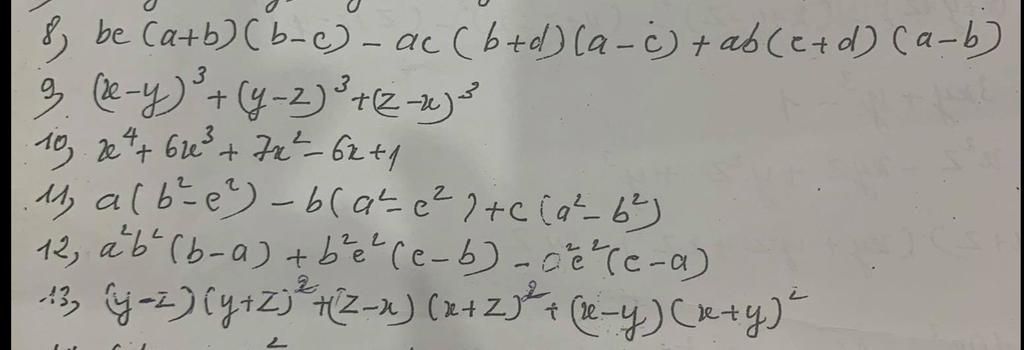 8, bc (a+b)(b-c) - ac (b+d)(a-c) + ab(c+d)(a-b)
9, (x-y)³+(y-z)³+(z-x)³
10, x⁴+ 6x³ + 7x² - 6x+1
11, a(b²-c²) - b(a²-c²)+c(a²-b²)
12, a²b²(b-a) + b²c²(c-b) - a²c²(c-a)
13, (y-z)(y+z)²+(z-x)(x+z)² + (x-y)(x+y)²